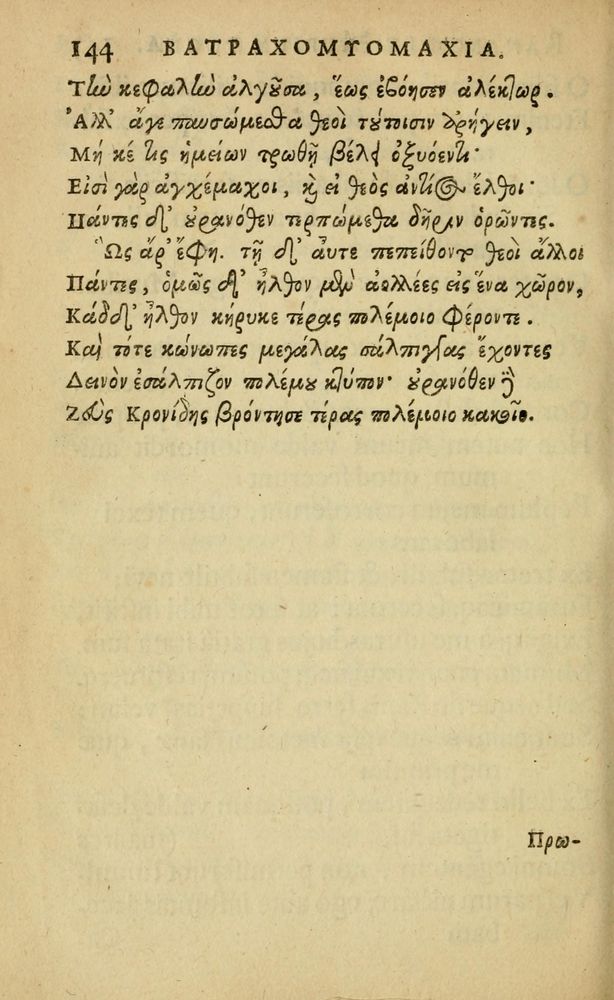 144 ΒΑΤΡΑΧΟΜΥΟΜΑΧΙΑ.
Τὴν κεφαλὴν ἀλγοῦσα, ἕως ἐβόησεν ἀλέκτωρ.
Ἀλλ' ἄγε παυσώμεσθα θεοὶ τούτοισιν ἀρήγειν,
Μή κέ τις ἡμείων τρωθῇ βέλει ὀξυόεντι·
Εἰσὶ γὰρ ἀγχέμαχοι, καὶ εἰ θεὸς ἀντίος ἔλθοι·
Πάντες δ' οὐρανόθεν τερπώμεθα δῆριν ὁρῶντες.
Ὣς ἄρ' ἔφη. τῇ δ' αὖτε πεπείθοντο θεοὶ ἄλλοι
Πάντες, ὁμῶς δ' ἦλθον μὲν ἀολλέες εἰς ἕνα χῶρον,
Κὰδ δ' ἦλθον κήρυκε τέρας πολέμοιο φέροντε.
Καὶ τότε κώνωπες μεγάλας σάλπιγγας ἔχοντες
Δεινὸν ἐσάλπιζον πολέμου κτύπον· οὐρανόθεν δὲ
Ζεὺς Κρονίδης βρόντησε τέρας πολέμοιο κακοῖο.
Πρω-